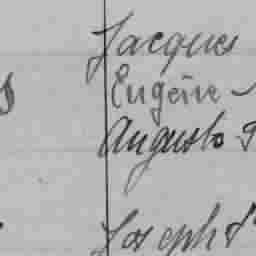 Jacques
Eugène
Augusto
Joseph